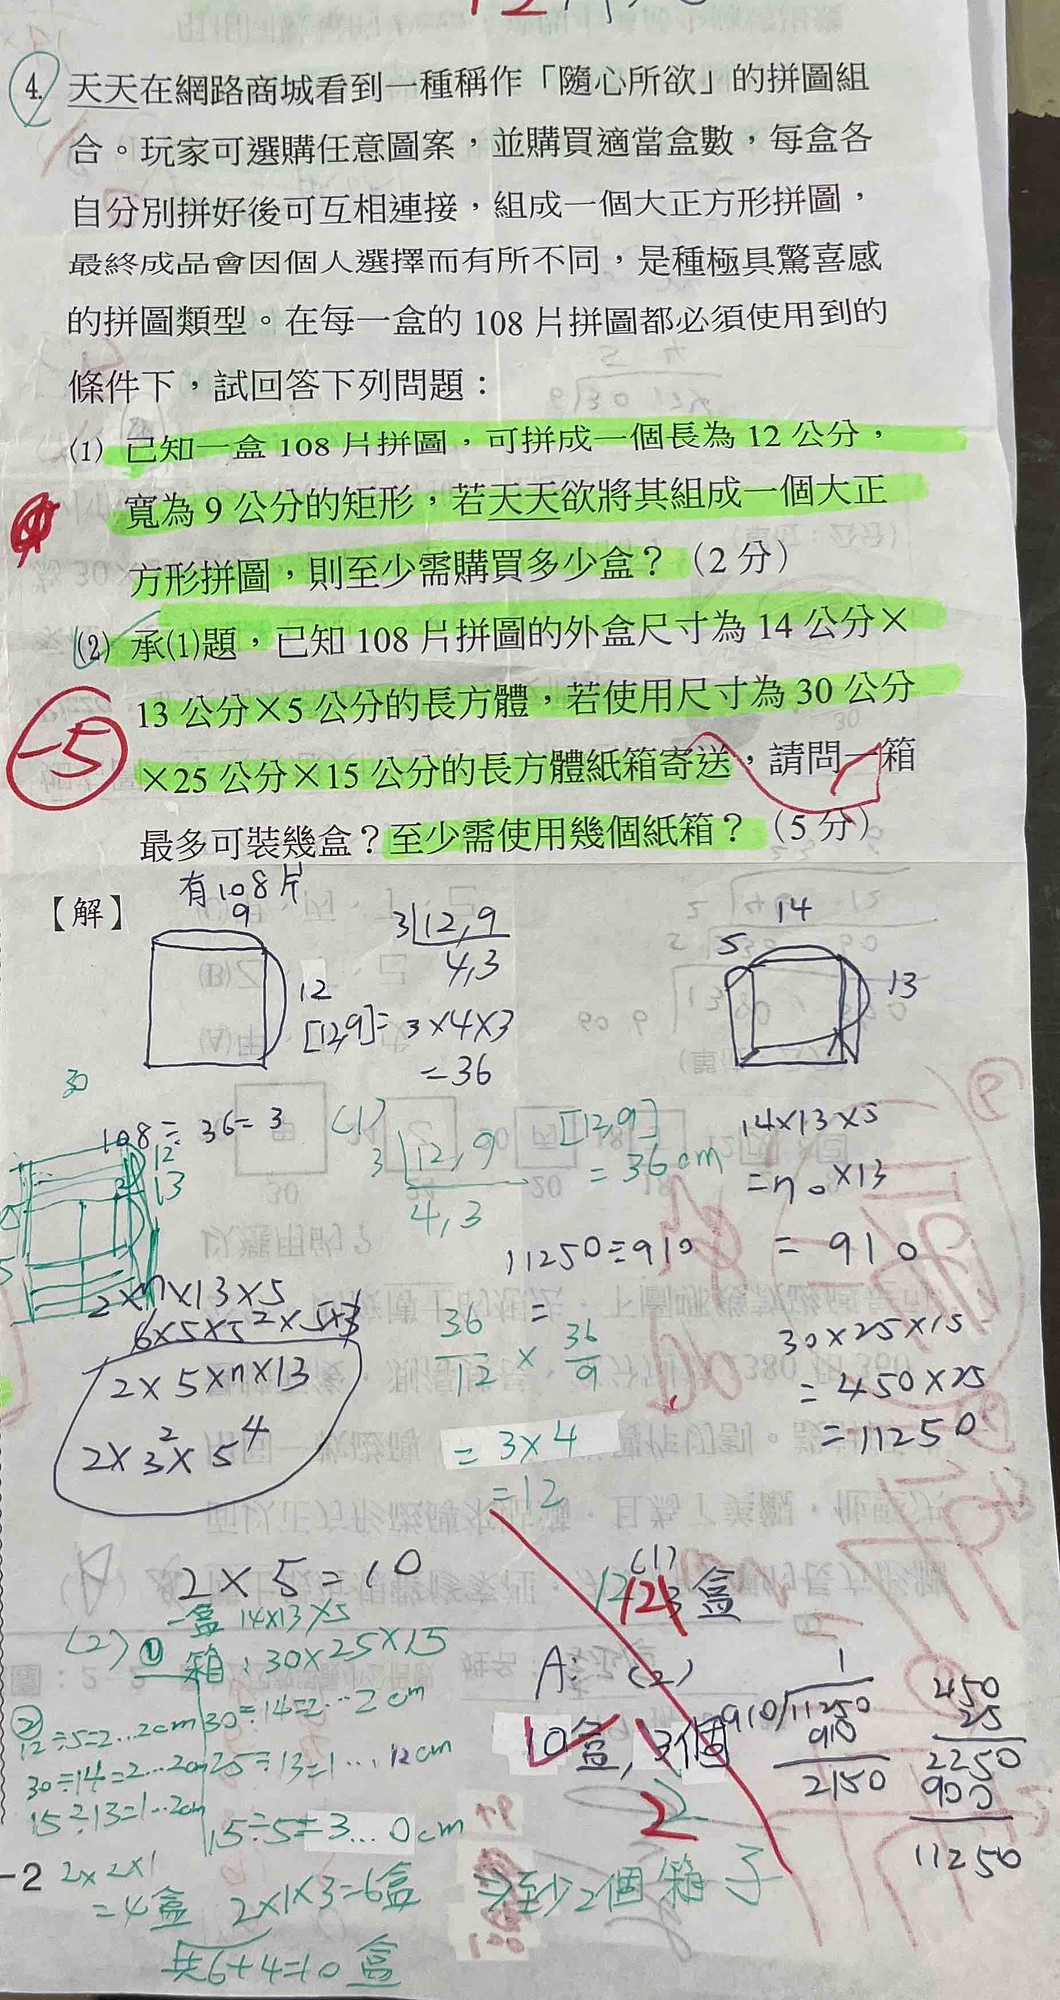 4. 天天在網路商城看到一種稱作「隨心所欲」的拼圖組
合。玩家可選購任意圖案，並購買適當盒數，每盒各
自分別拼好後可互相連接，組成一個大正方形拼圖，
最終成品會因個人選擇而有所不同，是種極具驚喜感
的拼圖類型。在每一盒的 108 片拼圖都必須使用到的
條件下，試回答下列問題：
(1) 已知一盒 108 片拼圖，可拼成一個長為 12 公分，
寬為 9 公分的矩形，若天天欲將其組成一個大正
方形拼圖，則至少需購買多少盒？（2 分）
(2) 承(1)題，已知 108 片拼圖的外盒尺寸為 14 公分×
13 公分×5 公分的長方體，若使用尺寸為 30 公分
-5
×25 公分×15 公分的長方體紙箱寄送，請問一箱
最多可裝幾盒？至少需使用幾個紙箱？（5 分）
【解】
有108片
9
12
3 12,9
4,3
[12,9]=3×4×3
=36
14
5
13
30
108÷36=3
12
13
(1)
3 12,9
4,3
[12,9]
=36cm
14×13×5
×13
=910
11250÷910
=
2×5
36/12 × 36/9
=3×4
=12
30×25×15
=450×25
=11250
2×5×13
2×3²×5⁴
2×5=10
(1)
盒
(2) ① 一盒 14×13×5
箱:30×25×15
30÷14=2…2cm
25÷13=1…12cm
15÷5=3…0cm
2×1×3=6盒
② 12÷5=2…2cm
30÷14=2…2cm
15÷13=1…2cm
2×2×1
=4盒
共6+4=10盒
A: (2)
10盒,
個
2
⇒至少2個箱子
1
910 11250
910
2150
450
25
2250
900
11250
-2